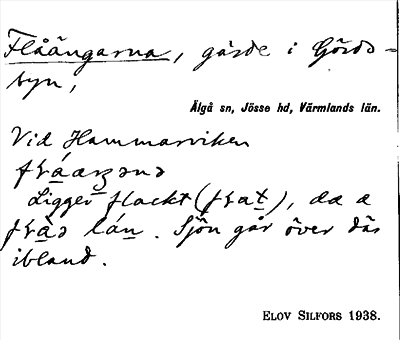 Flåängarna, gärde i Gärds-
byn,
Älgå sn, Jösse hd, Värmlands län.
Vid Hammarviken
Ligger flackt (
lán. Sjön går över där
ibland.
ELOV SILFORS 1938.